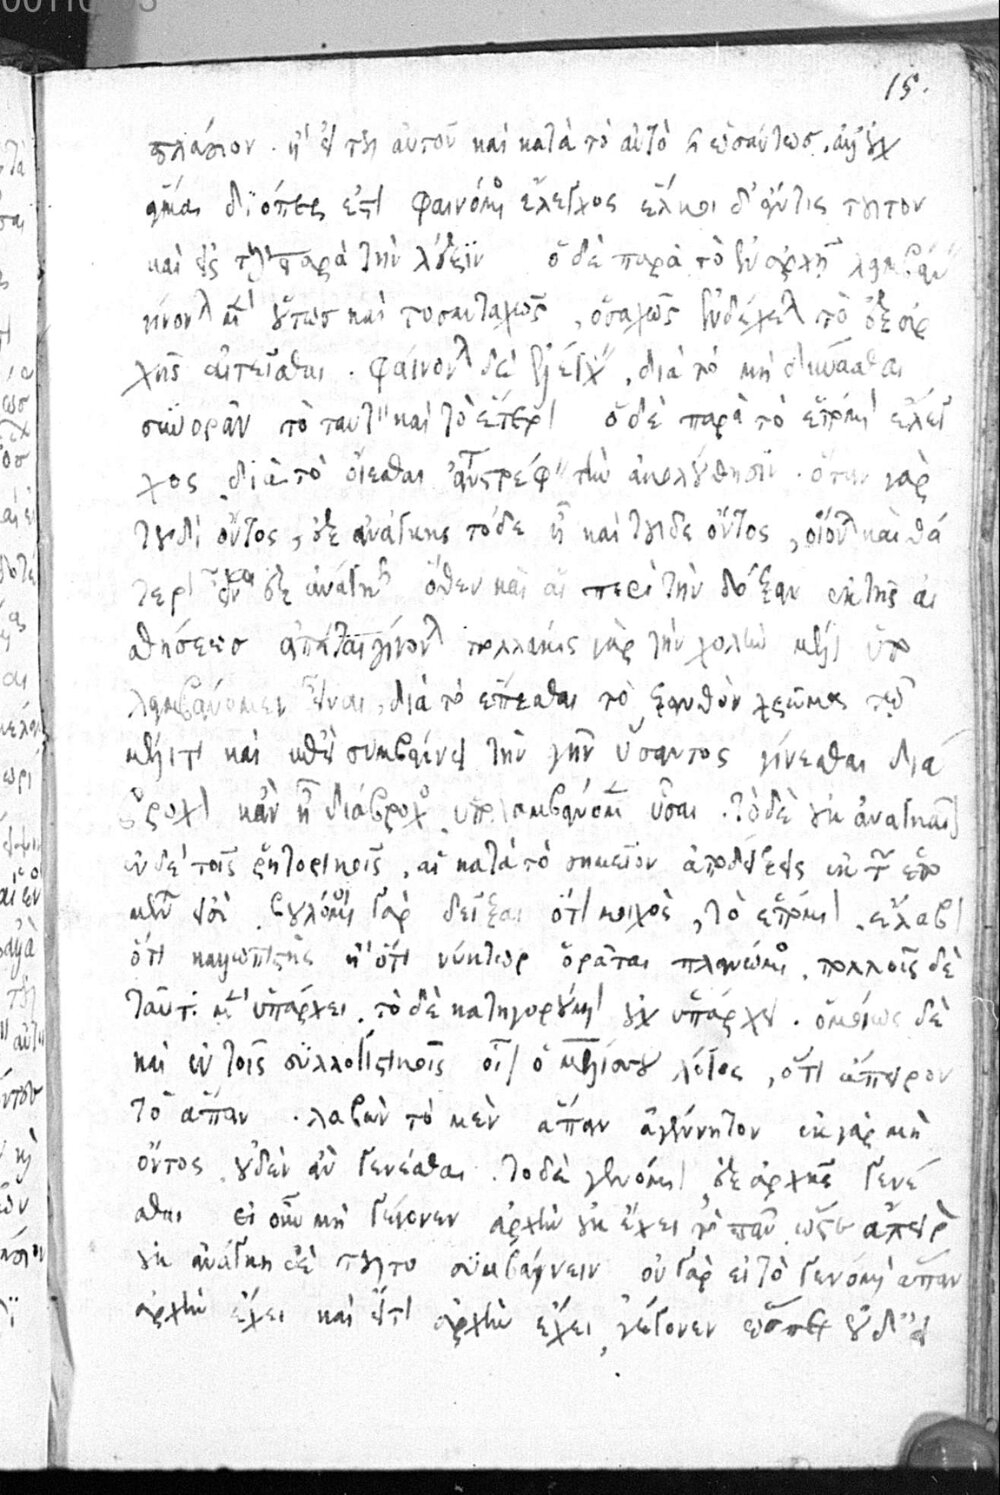 πλάσιον. ἢ εἰ τοῦ αὐτοῦ καὶ κατὰ τὸ αὐτὸ καὶ ὡσαύτως. ἀλλ' οὐχ
ἅμα διόπερ ἐστὶ φαινόμενος ἔλεγχος ἕλκοι δ' ἄν τις τοῦτον
καὶ εἰς τοὺς παρὰ τὴν λέξιν ὁ δὲ παρὰ τὸ ἐν ἀρχῇ λαμβάνειν
γίνονται μὲν οὕτως καὶ τοσαυταχῶς, ὁσαχῶς ἐνδέχεται τὸ ἐξ ἀρ
χῆς αἰτεῖσθαι. φαίνονται δὲ ἐλέγχειν, διὰ τὸ μὴ δύνασθαι
συνορᾶν τὸ ταυτὸν καὶ τὸ ἕτερον ὁ δὲ παρὰ τὸ ἑπόμενον ἔλεγ
χος διὰ τὸ οἴεσθαι ἀντιστρέφειν τὴν ἀκολούθησιν. ὅταν γὰρ
τουδὶ ὄντος, ἐξ ἀνάγκης τόδε ἦ καὶ τοῦδε ὄντος, οἴονται καὶ θά
τερον εἶναι ἐξ ἀνάγκης ὅθεν καὶ αἱ περὶ τὴν δόξαν ἐκ τῆς αἰ
σθήσεως ἀπάται γίνονται πολλάκις γὰρ τὴν χολὴν μέλι ὑπο
λαμβάνομεν εἶναι, διὰ τὸ ἕπεσθαι τὸ ξανθὸν χρῶμα τῷ
μέλιτι καὶ ἐπεὶ συμβαίνει τὴν γῆν ὕσαντος γίνεσθαι διά
βροχον κἂν ἦ διάβροχος ὑπολαμβάνομεν ὗσαι. τὸ δὲ οὐκ ἀναγκαῖον
ἐν δὲ τοῖς ῥητορικοῖς, αἱ κατὰ τὸ σημεῖον ἀποδείξεις ἐκ τῶν ἑπο
μένων εἰσί βουλόμενοι γὰρ δεῖξαι ὅτι μοιχὸς, τὸ ἑπόμενον ἔλαβον
ὅτι καλλωπιστὴς ἢ ὅτι νύκτωρ ὁρᾶται πλανώμενος. πολλοῖς δὲ
ταῦτα μὲν ὑπάρχει. τὸ δὲ κατηγορούμενον οὐχ ὑπάρχει. ὁμοίως δὲ
καὶ ἐν τοῖς συλλογιστικοῖς οἷον ὁ μελίσσου λόγος, ὅτι ἄπειρον
τὸ ἅπαν. λαβὼν τὸ μὲν ἅπαν ἀγέννητον ἐκ γὰρ μὴ
ὄντος οὐδὲν ἂν γενέσθαι. τὸ δὲ γενόμενον ἐξ ἀρχῆς γενέ
σθαι εἰ οὖν μὴ γέγονεν ἀρχὴν οὐκ ἔχει τὸ πᾶν ὥστε ἄπειρον
οὐκ ἀνάγκη δὲ τοῦτο συμβαίνειν οὐ γὰρ εἰ τὸ γενόμενον ἅπαν
ἀρχὴν ἔχει καὶ εἴ τι ἀρχὴν ἔχει γέγονεν ὥσπερ οὐδ' εἰ